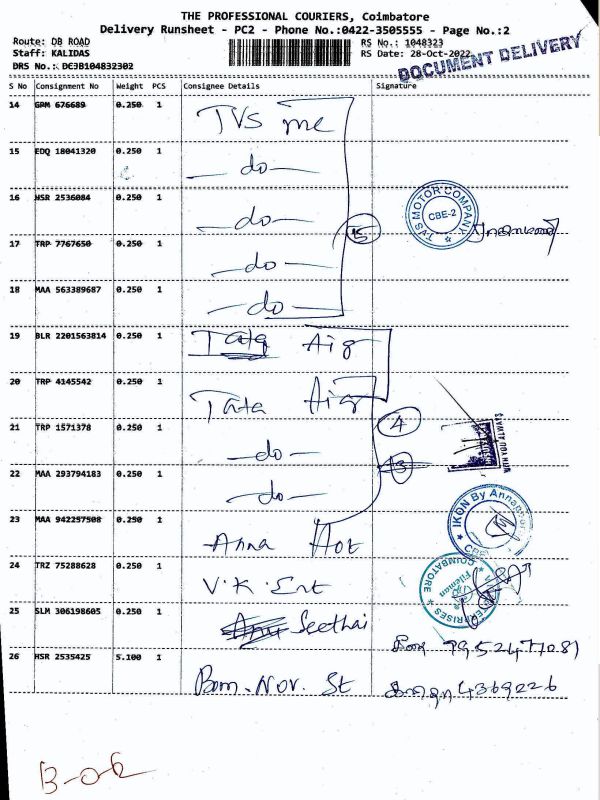 THE PROFESSIONAL COURIERS, Coimbatore
Delivery Runsheet - PC2 - Phone No.:0422-3505555 - Page No.:2
Route: DB ROAD RS No.: 1048323
Staff: KALIDAS RS Date: 28-Oct-2022
DRS No.: DE3B104832302
DOCUMENT DELIVERY
S No Consignment No Weight PCS Consignee Details Signature
14 GPM 676689 0.250 1 TVS mc
15 EDQ 18041320 0.250 1 — do —
16 HSR 2536084 0.250 1 — do —
TVS MOTOR COMPANY
CBE-2
17 TRP 7767650 0.250 1 — do —
18 MAA 563389687 0.250 1 — do —
19 BLR 2201563814 0.250 1 Tata Aig
20 TRP 4145542 0.250 1 Tata Aig
4
21 TRP 1571378 0.250 1 — do —
22 MAA 293794183 0.250 1 — do —
23 MAA 942257508 0.250 1 Anna Hot
IKON By Annapoorna
24 TRZ 75288628 0.250 1 V.K. Ent
COIMBATORE
25 SLM 306198605 0.250 1 Seethai
26 HSR 2535425 5.100 1 Bom. Nov. St